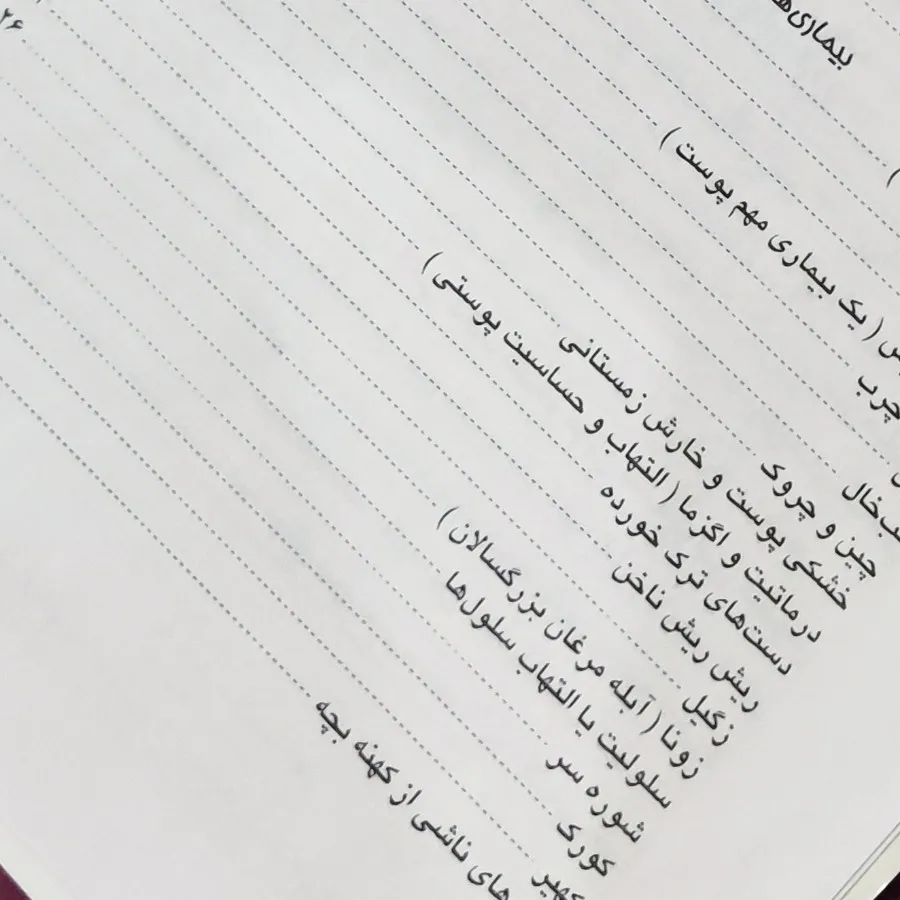 بیماری‌ها
)
( یک بیماری مهم پوست )
چرب
خال
چین و چروک
خشکی پوست و خارش زمستانی
درماتیت و اگزما ( التهاب و حساسیت پوستی )
دست‌های ترک خورده
ریش ریش ناخن
زگیل
زونا ( آبله مرغان بزرگسالان )
سلولیت یا التهاب سلول‌ها
شوره سر
کورک
کهیر
های ناشی از کهنه بچه
۲۶